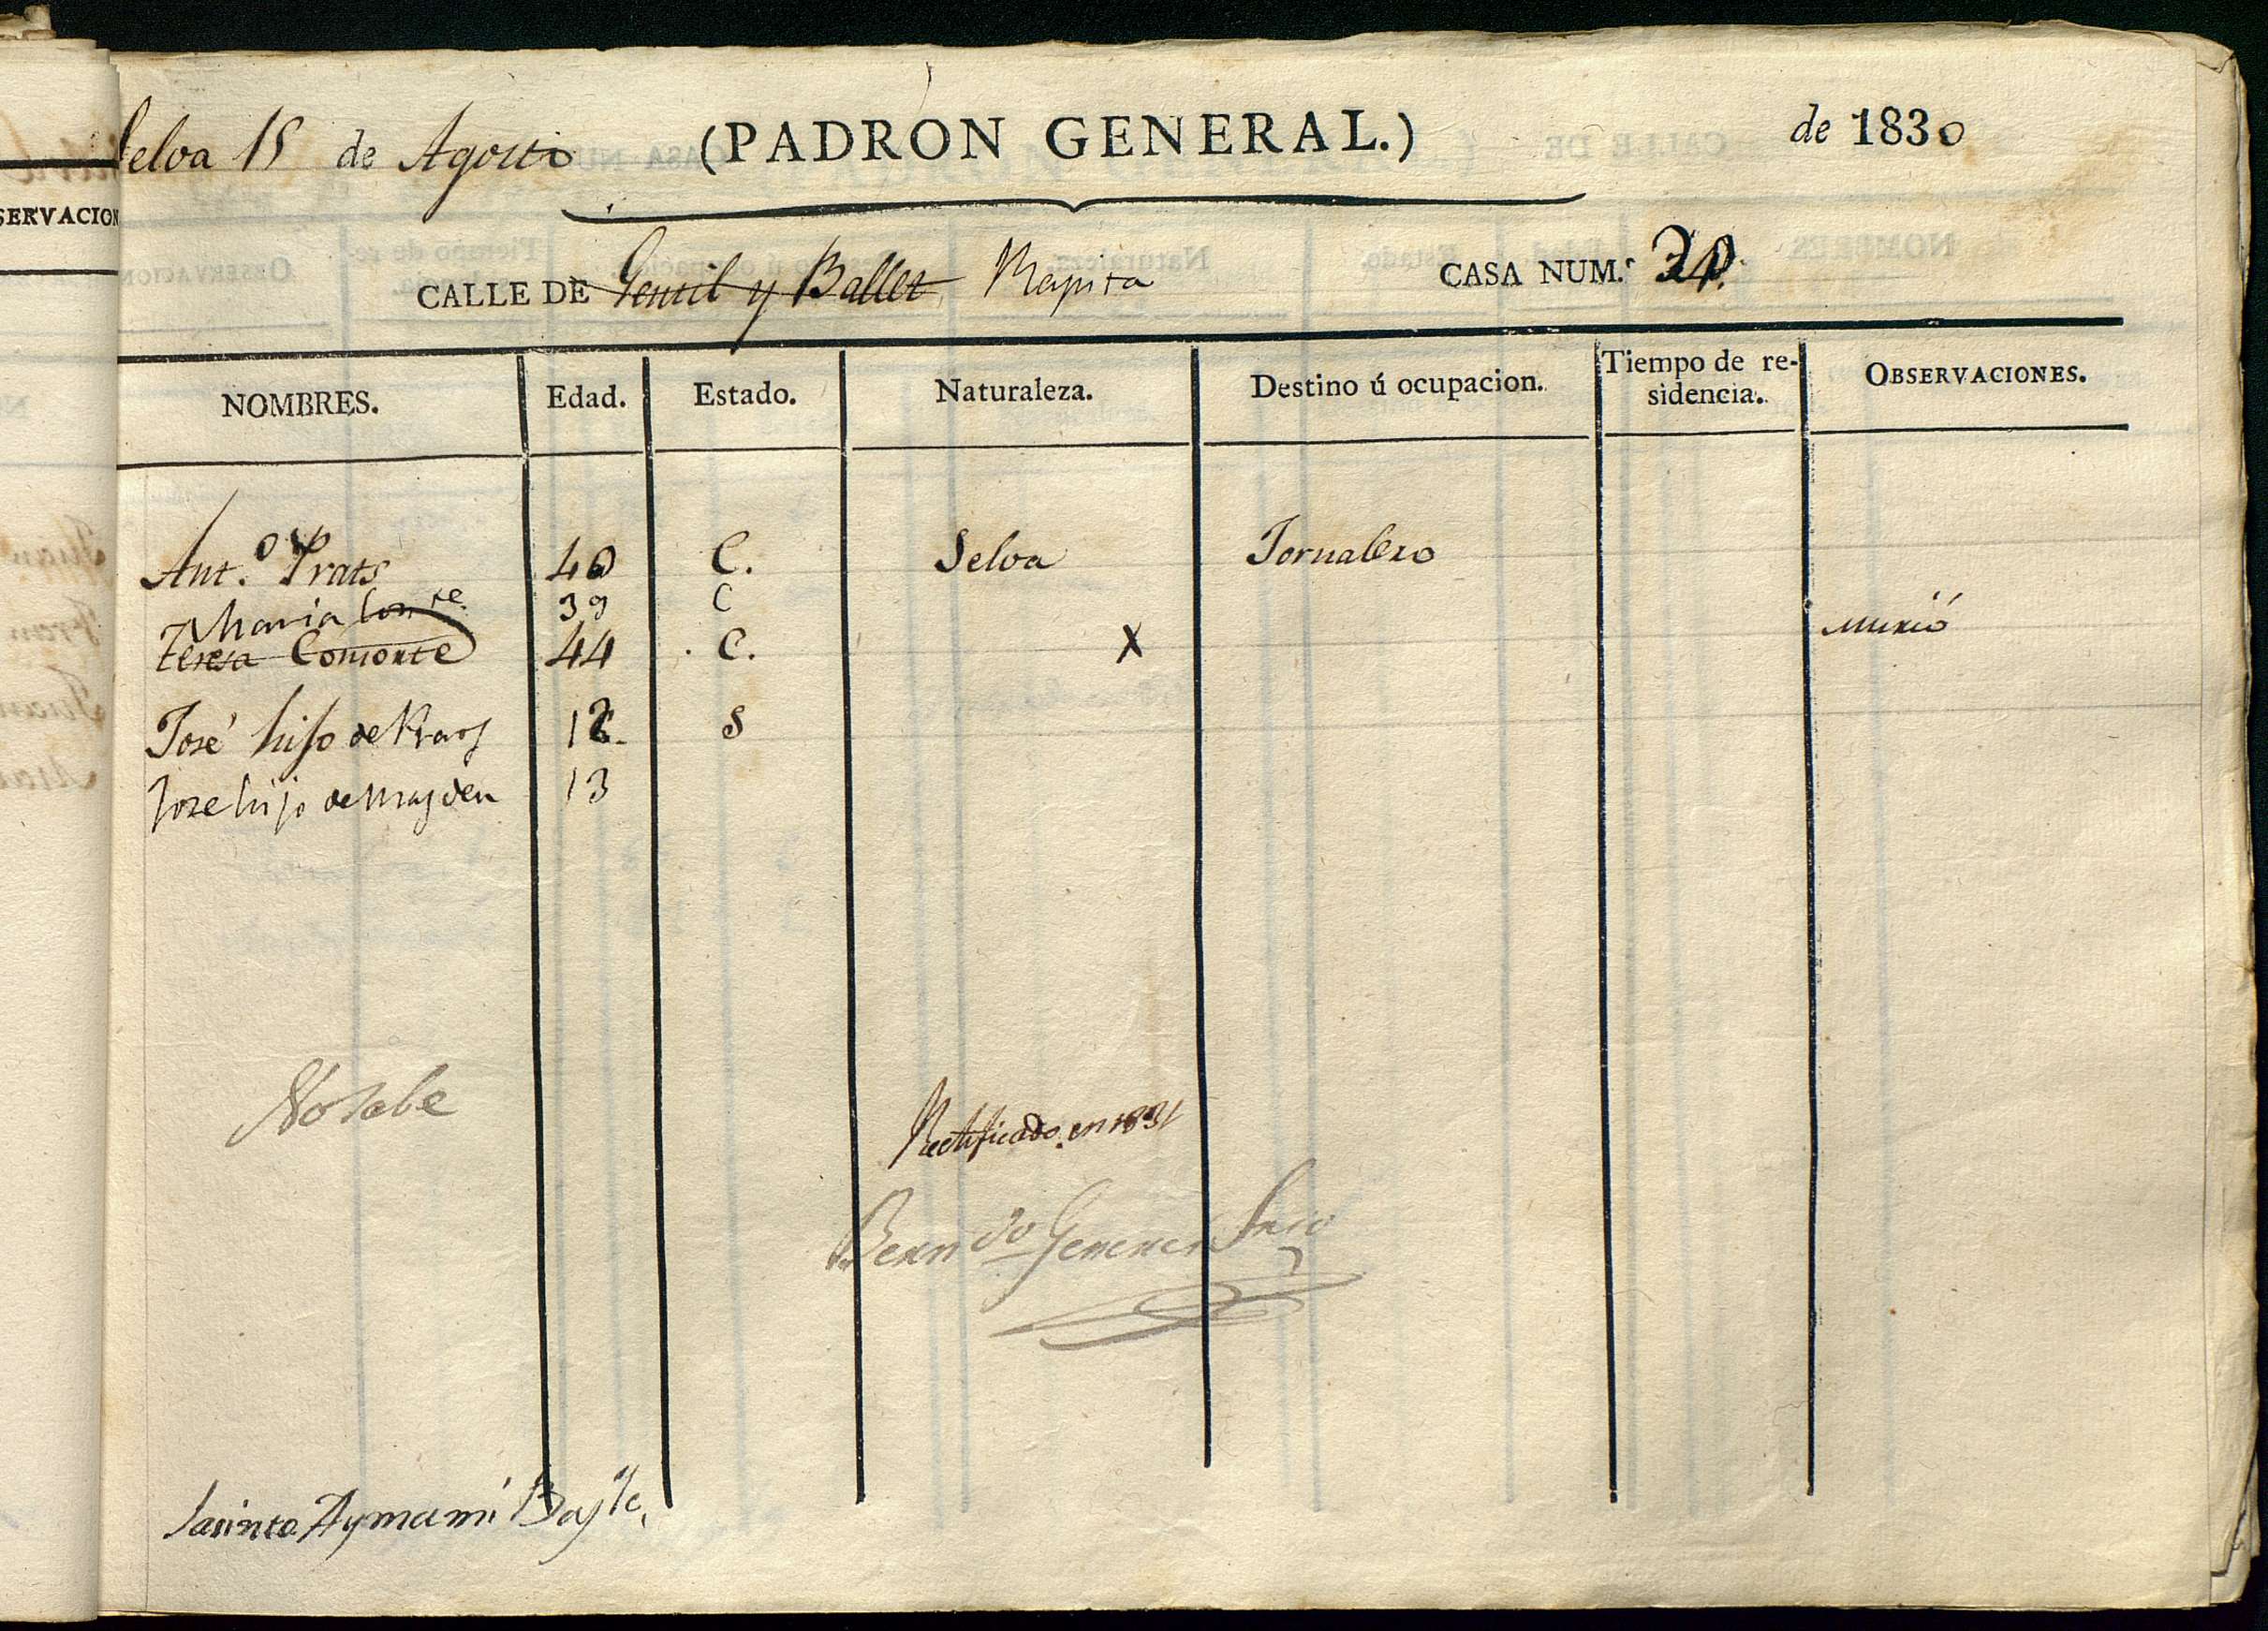 Selva 15 de Agosto (PADRON GENERAL.) de 1830
SERVACION
CALLE DE Gentil y Ballet Rapita CASA NUM.º
NOMBRES. Edad. Estado. Naturaleza. Destino ú ocupacion. Tiempo de re-
sidencia. OBSERVACIONES.
Ant.º Prats 40 C. Selva Jornalero
Maria Con.te 39 C
teresa Consorte 44 C. X murió
José hijo de Prats 12 S
Jose hijo de Magden 13
No sabe
Rectificado en 1831
Bern.do Gener Srio
Jacinto Aymamí Bayle,